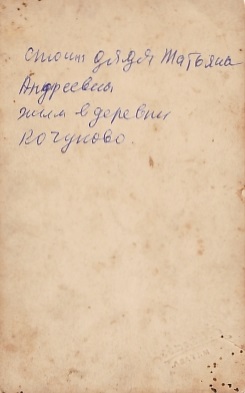 стоит дядя Татьяна
Андреевны
жили в деревни
Кочуково.